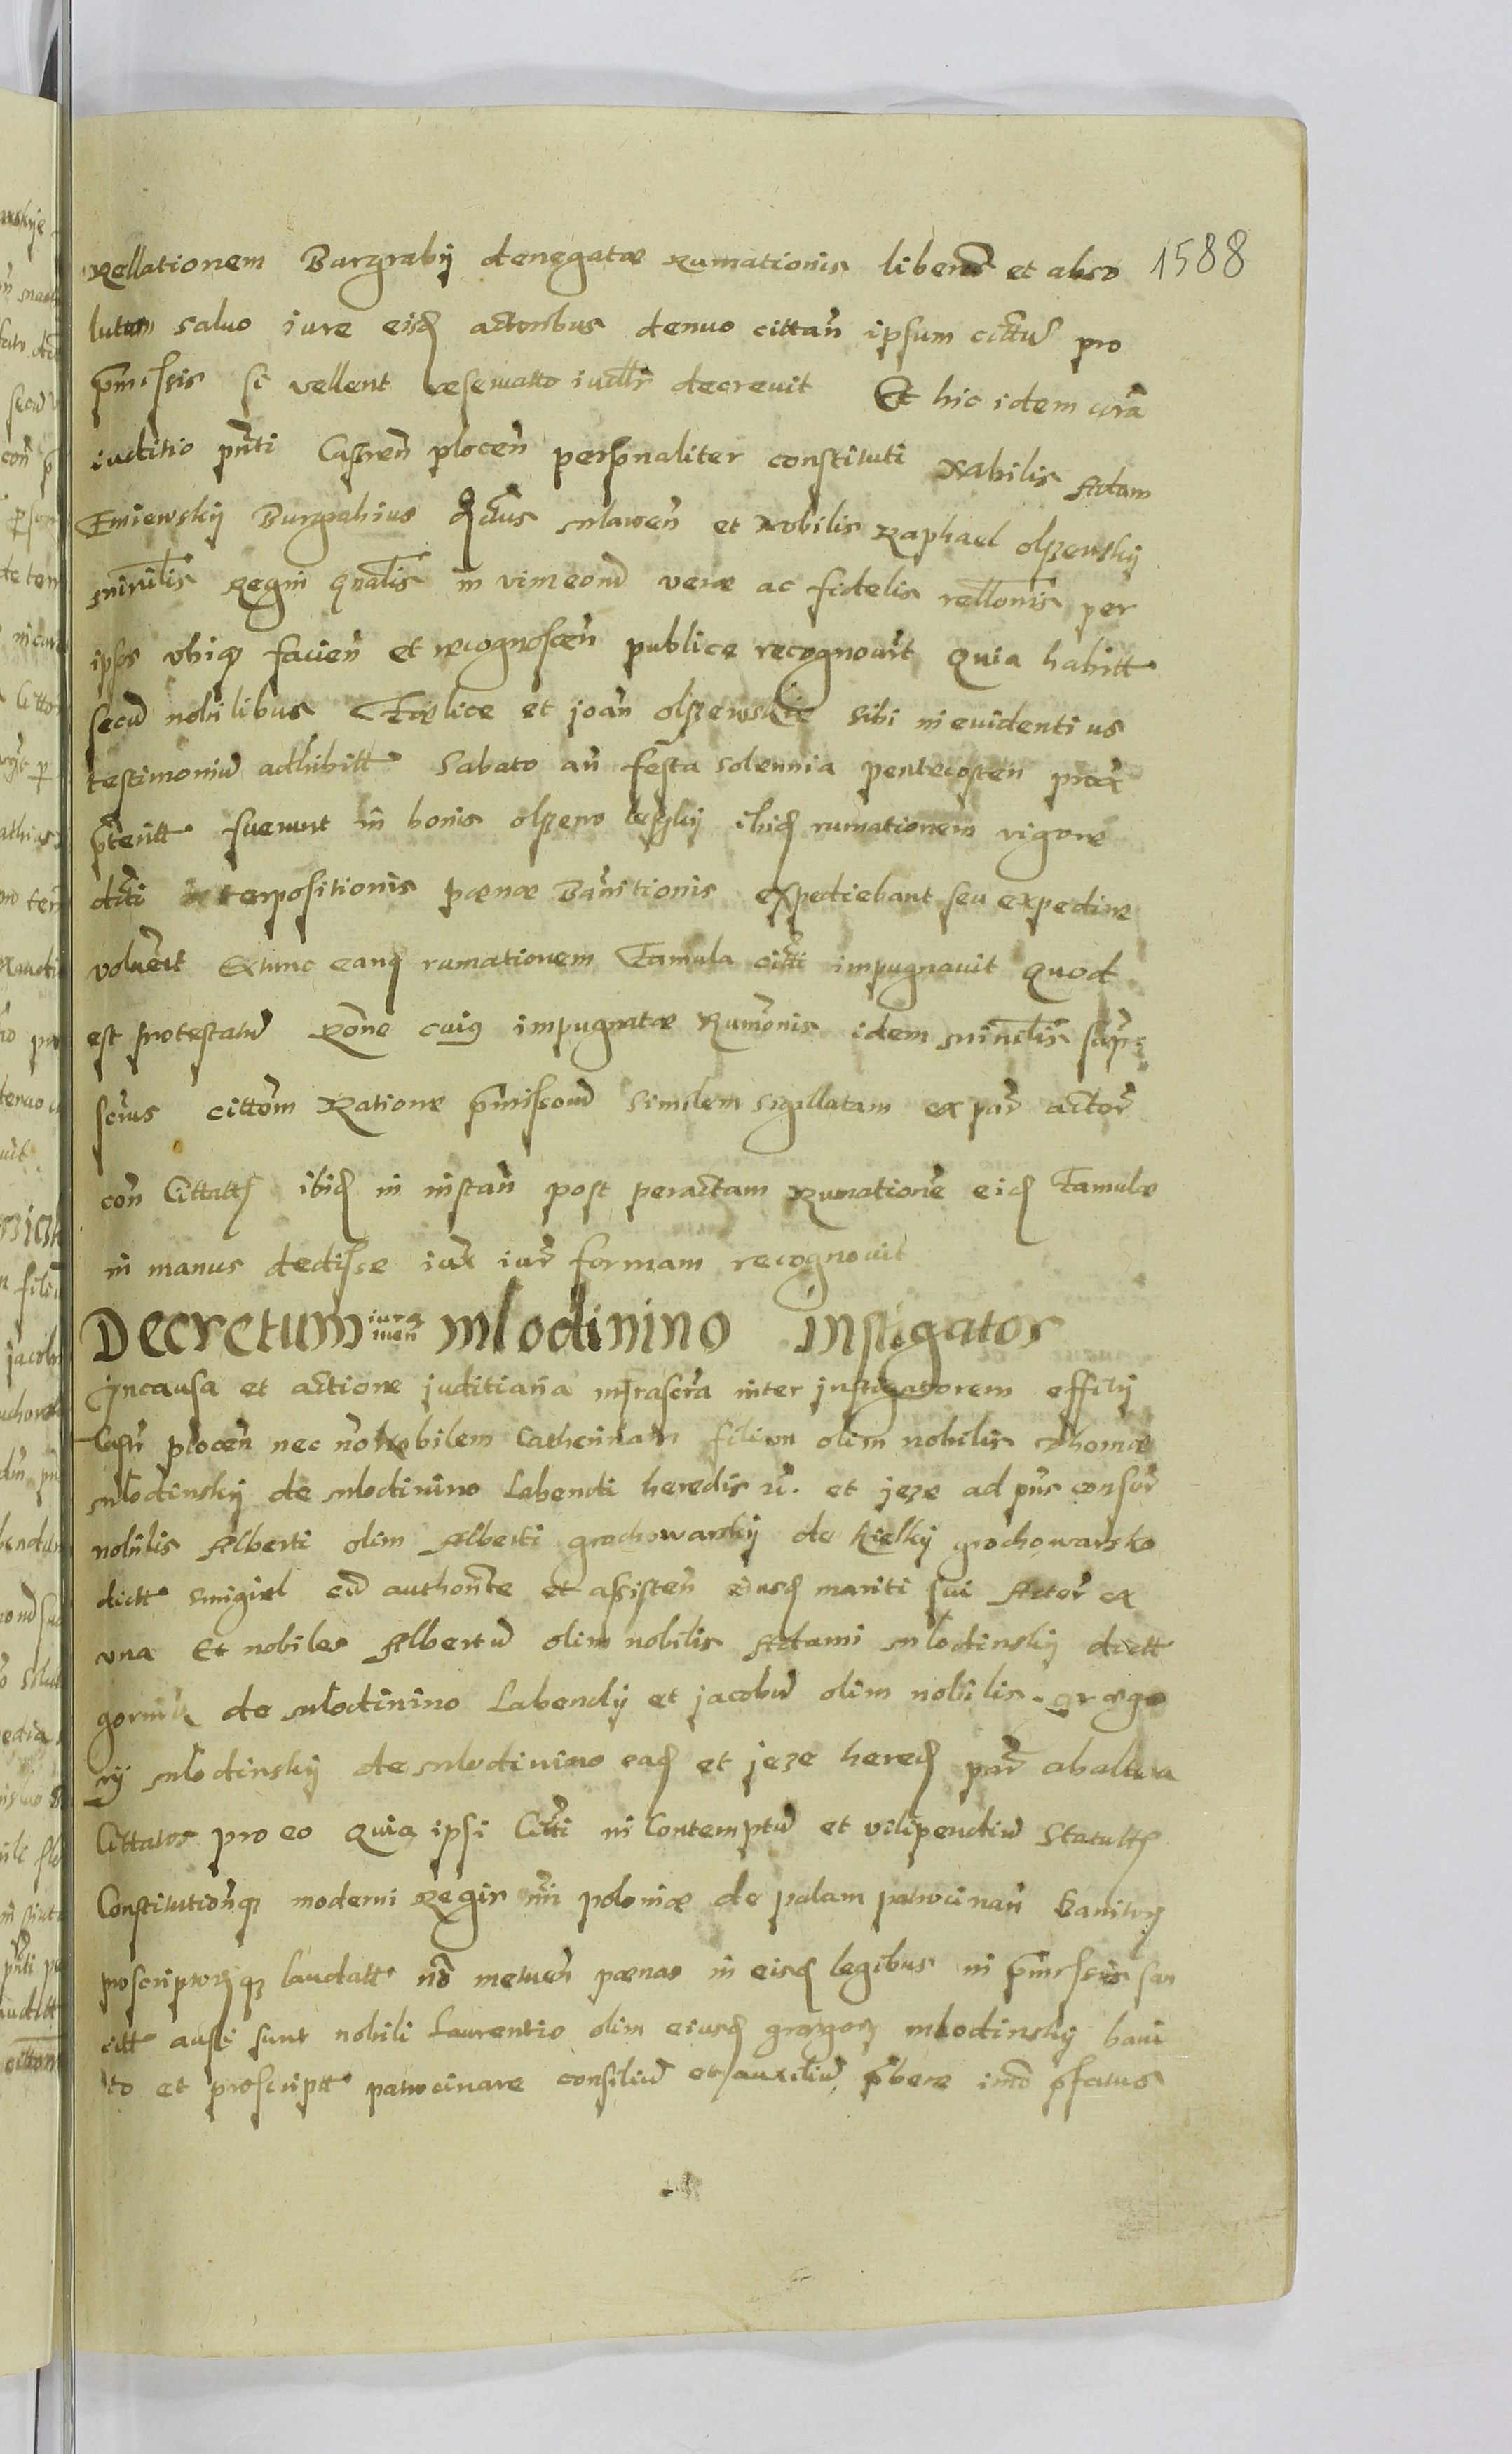 Rellationem Burgrabij denegatæ Rumationis liberũ et abso 1588
lutum saluo iure eisd actoribus denuo cittañ ipsum cittũ pro
p̃missis si vellent reseruatto iudłr decreuit Et hic idem corã
iuditio pñti Castreñ ploceñ personaliter constituti Nobilis Adam
Burgrabius et Nobilis Raphael olszewskij
minrãlis Regni gñalis in vim eorũ veræ ac fidelis rełłonis per
ipsos vbiqȝ facieñ et recognosceñ publice recognouẽrt Quia habitt
secũ nobilibus Fælice et joañ olszewskie sibi in euidentius
testimoniũ adhibitt Sabato añ festa solennia pentecosten prox̃
p̃teritt fuerunt in bonis olszewo ibid rumationem vigore
dicti interpositionis pœnæ Bañitionis expediebant seu expedire
voluẽrt Extunc eand rumationem Famula citti impugnauit Quod
est protestatũ Rõne cuiȝ impugnatæ Rumõnis idem minrãlis supr̃
scr̃us cittõm Ratione p̃missorũ similem sigillatam ex par̃ actor̃
coñ Cittatt ibid in instañ post peractam Rumationẽ eid Famulæ
in manus dedisse iux̃ iur̃ formam recognouit
Decretum iura men mlodinino instigator
Jn causa et actione juditiaria infrascr̃a inter instigatorem officij
Castr̃ ploceñ nec nõ Nobilem Catherinam filiam olim nobilis Thomæ
mlodinskij de mlodinino Labendi heredis et jeze ad pñs consor̃
nobilis Alberti olim Alberti grochowarskij de kielkij grochowarsko
dictt smigiel cũ authorĩte et assisteñ eiusd mariti sui Actor̃ ex
vna Et nobiles Albertũ olim nobilis Adami mlodinskij dictt
gornik de mlodinino Labendij et jacobũ olim nobilis grego
rij mlodinskij de mlodinino ead et jeze hered par̃ ab altera
Cittatos pro eo Quia ipsi Citti in Contemptũ et vilipendiũ Statutt
Constitutionũqȝ moderni Regis nr̃i poloniæ de palam patrocinañ banitor
proscriptorqȝ laudatt nõ metueñ pœnas in eisd legibus in p̃missis san
citt ausi sunt nobili Laurentio olim eiusd gregorij mlodinskij bani
to et proscriptt patrocinare consiliũ et auxiliũ p̃bere imõ p̃fatus